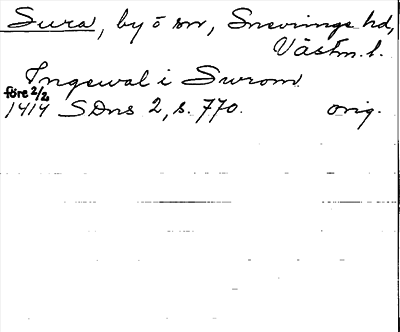 Sura, by o sn, Snevringe hd,
Västm. l.
Ingewal i Swrom
före 2/2
1414 SDns 2, s. 770. orig.